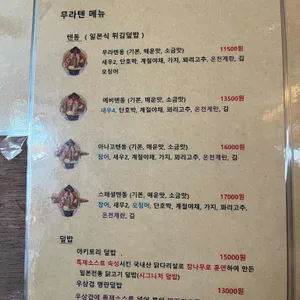 무라텐 메뉴
텐동 ( 일본식 튀김덮밥 )
무라텐동 (기본, 매운맛, 소금맛) 11500원
새우2, 단호박, 계절야채, 가지, 꽈리고추, 온천계란, 김
오징어
에비텐동 (기본, 매운맛, 소금맛) 13500원
새우4, 단호박, 계절야채, 가지, 꽈리고추, 온천계란, 김
아나고텐동 (기본, 매운맛, 소금맛) 16000원
장어, 새우2, 단호박, 계절야채, 가지, 꽈리고추, 온천계란, 김
스페셜텐동 (기본, 매운맛, 소금맛) 17000원
장어, 새우2, 오징어, 단호박, 계절야채, 가지, 꽈리고추,
온천계란, 김
덮밥
야키토리 덮밥. 15000원
흑제소스로 숙성시킨 국내산 닭다리살로 참나무로 훈연하여 만든
일본전통 닭고기 덮밥(시그니처 덮밥)
우삼겹 명란덮밥 13000원
우삼겹에